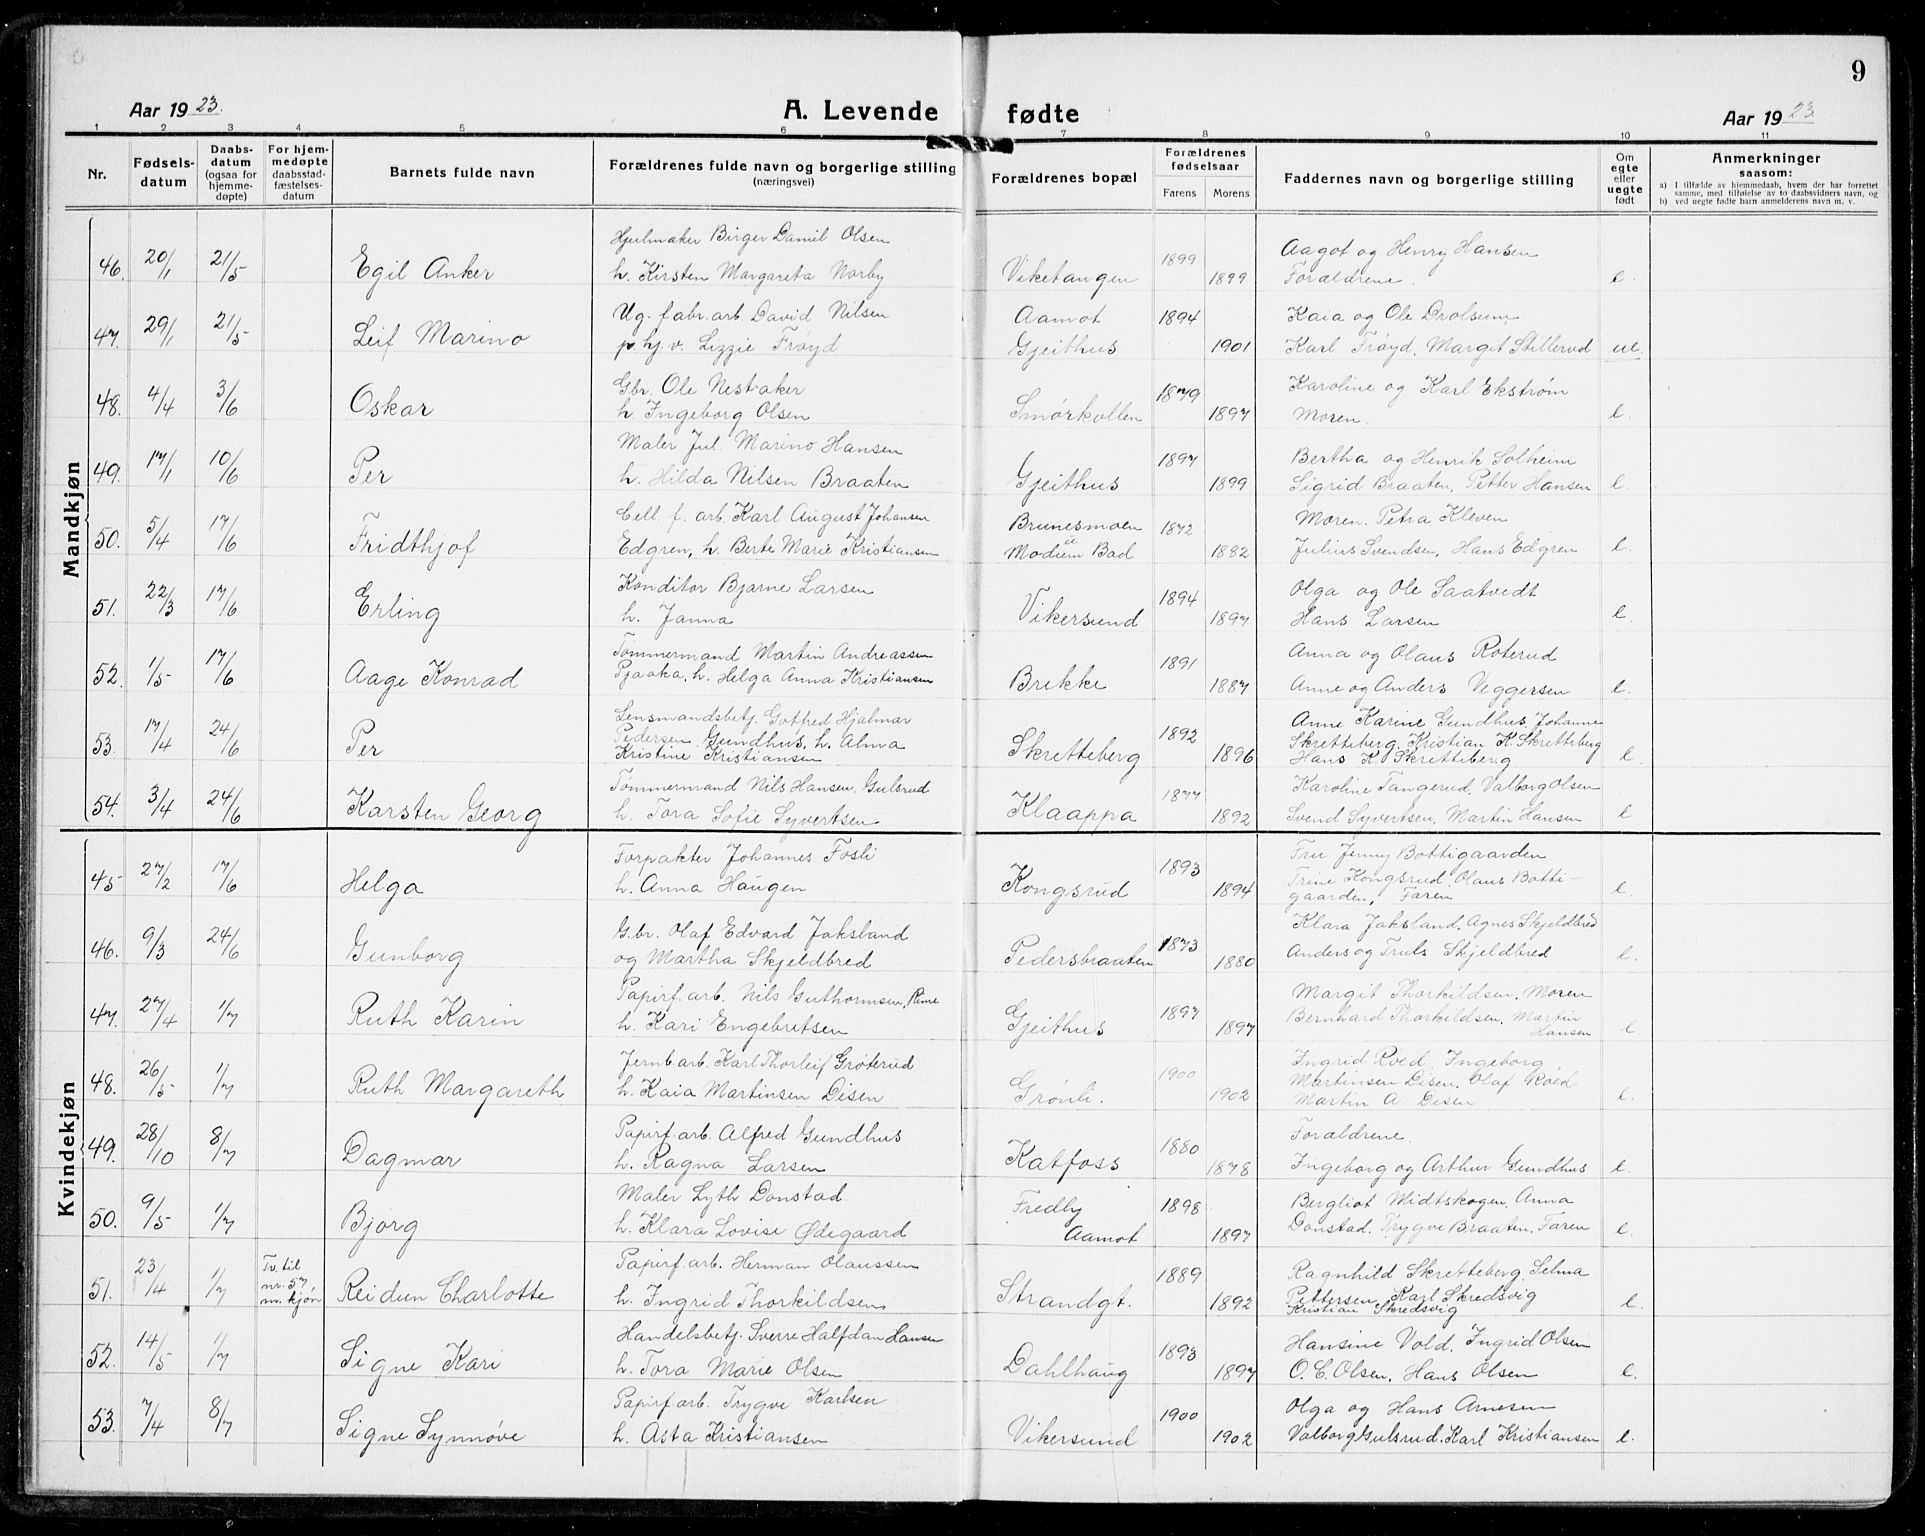 9
Aar 1923.
A. Levende fødte
Aar 1923.
1 2 3 4 5 6 7 8 9 10 11
Nr.
Fødselsdatum
Daabsdatum (ogsaa for hjemmedøpte)
For hjemmedøpte daabsstadfæstelsesdatum
Barnets fulde navn
Forældrenes fulde navn og borgerlige stilling (næringsvei)
Forældrenes bopæl
Forældrenes fødselsaar
Farens Morens
Faddernes navn og borgerlige stilling
Om egte eller uegte født
Anmerkninger saasom:
a) I tilfælde av hjemmedaab, hvem der har forrettet samme, med tilføielse av to daabsvidners navn, og
b) ved uegte fødte barn anmelderens navn m. v.
Mandkjøn
46. 20/1 21/5 Egil Anker
Hjulmaker Birger Daniel Olsen
h. Kirsten Margareta Norby
Viketangen 1899 1899
Aagot og Henry Hansen
Forældrene. e.
47. 29/1 21/5 Leif Marino
Ug. fabr.arb. David Nilsen
p. hj. v. Lizzie Frøyd
Aamot 1894
Gjeithus 1901
Kaia og Ole Drolsum
Karl Frøyd, Margit Stillerud ue.
48. 4/4 3/6 Oskar
Gbr. Ole Nestaker
h. Ingeborg Olsen
Smørkollen 1879 1897
Karoline og Karl Ekstrøm
Moren. e.
49. 17/1 10/6 Per
Maler Jul. Marino Hansen
h. Hilda Nilsen Braaten
Gjeithus 1897 1899
Bertha og Henrik Solheim
Sigrid Braaten, Petter Hansen e.
50. 5/4 17/6 Fridthjof
Cell. f. arb. Karl August Johansen
Edgren, h. Berte Marie Kristiansen
Brunesmoen
Modum Bad 1872 1882
Moren. Petra Kleven
Julius Svendsen, Hans Edgren e.
51. 22/3 17/6 Erling
Konditor Bjarne Larsen
h. Janna
Vikersund 1894 1897
Olga og Ole Saatvedt
Hans Larsen e.
52. 1/5 17/6 Aage Konrad
Tømmermand Martin Andreassen
Pjaaka, h. Helga Anna Kristiansen
Brekke 1891 1887
Anna og Olaus Roterud
Anne og Anders Veggersen e.
53. 17/4 24/6 Per
Lensmandsbetj. Gotfred Hjalmar
Pedersen Gundhus, h. Alma
Kristine Kristiansen
Skretteberg 1892 1896
Anne Karine Gundhus, Johanne
Skretteberg, Kristian K. Skretteberg
Hans K. Skretteberg e.
54. 3/4 24/6 Karsten Georg
Tømmermand Nils Hansen Gulsrud
h. Tora Sofie Syvertsen
Klaappa 1877 1892
Karoline Tangerud, Valborg Olsen
Svend Syvertsen, Martin Hansen e.
Kvindekjøn
45 27/2 17/6 Helga
Forpakter Johannes Fosli
h. Anna Haugen
Kongsrud 1893 1894
Fru Jenny Bottigaarden
Trine Kongsrud, Olaus Botti-
gaarden, Faren e.
46. 9/3 24/6 Gunborg
Gbr. Olaf Edvard Jaksland
og Martha Skjeldbred
Pedersbraaten 1873 1880
Klara Jaksland, Agnes Skjeldbred
Anders og Truls Skjeldbred e.
47. 27/4 1/7 Ruth Karin
Papirf.arb. Nils Guthormsen, Rime
h. Kari Engebretsen
Gjeithus 1897 1897
Margit Thorkildsen, Moren
Bernhard Thorkildsen, Martin
Hansen e.
48. 26/5 1/7 Ruth Margareth
Jernb.arb. Karl Thorleif Grøterud
h. Kaia Martinsen Disen
Grønli. 1900 1902
Ingrid Røed, Ingeborg
Martinsen Disen, Olaf Røed
Martin A. Disen e.
49. 28/10 8/7 Dagmar
Papirf.arb. Alfred Gundhus
h. Ragna Larsen
Katfoss 1880 1878
Forældrene.
Ingeborg og Arthur Gundhus e.
50. 9/5 1/7 Bjørg
Maler Lyth Donstad
h. Klara Lovise Ødegaard
Fredby
Aamot 1898 1897
Bergliot Midtskogen, Anna
Donstad, Trygve Braaten, Faren e.
51. 23/4 1/7 Tv. til nr. 57 m. kjøn Reidun Charlotte
Papirf.arb. Herman Olaussen
h. Ingrid Thorkildsen
Strandgt. 1889 1892
Ragnhild Skretteberg, Selma
Pettersen, Karl Skredsvig
Kristian Skredsvig e.
52. 14/5 1/7 Signe Kari
Handelsbetj. Sverre Halfdan Hansen
h. Tora Marie Olsen
Dahlhaug 1893 1897
Hansine Vold, Ingrid Olsen
O. C. Olsen, Hans Olsen e.
53. 7/4 8/7 Signe Synnøve
Papirf.arb. Trygve Karlsen
h. Asta Kristiansen
Vikersund 1900 1902
Olga og Hans Arnesen
Valborg Gulsrud, Karl Kristiansen e.